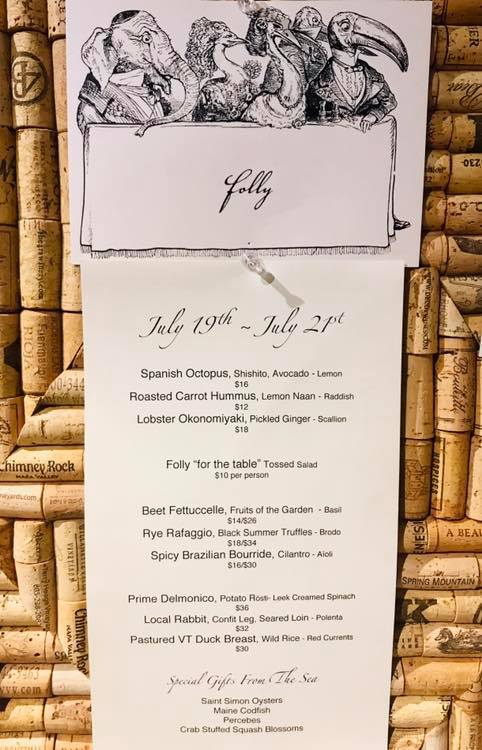 folly
July 19th ~ July 21st
Spanish Octopus, Shishito, Avocado - Lemon
$16
Roasted Carrot Hummus, Lemon Naan - Raddish
$12
Lobster Okonomiyaki, Pickled Ginger - Scallion
$18
Folly "for the table" Tossed Salad
$10 per person
Beet Fettuccelle, Fruits of the Garden - Basil
$14/$26
Rye Rafaggio, Black Summer Truffles - Brodo
$18/$34
Spicy Brazilian Bourride, Cilantro - Aioli
$16/$30
Prime Delmonico, Potato Rösti- Leek Creamed Spinach
$36
Local Rabbit, Confit Leg, Seared Loin - Polenta
$32
Pastured VT Duck Breast, Wild Rice - Red Currents
$30
Special Gifts From The Sea
Saint Simon Oysters
Maine Codfish
Percebes
Crab Stuffed Squash Blossoms
Chimney Rock
NAPA VALLEY
SPRING MOUNTAIN